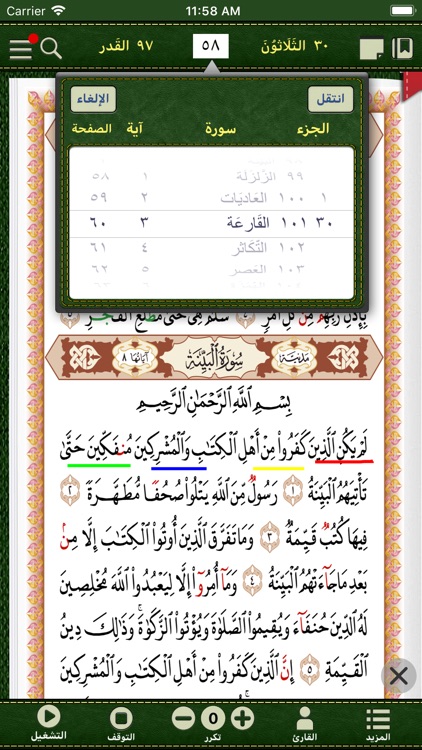 Carrier 11:58 AM
٣٠ الثَلَاثُونَ ٥٨ ٩٧ القَدر
انتقل الإلغاء
الجزء سورة آية الصفحة
٩٩ الزَلزَلة ١ ٥٨
١ ١٠٠ العَاديَات ٢ ٥٩
٣٠ ١٠١ القَارعَة ٣ ٦٠
١٠٢ التَّكَاثُر ٤ ٦١
١٠٣ العَصر ٥ ٦٢
بِإِذْنِ رَبِّهِم مِّن كُلِّ أَمْرٍ ٤ سَلَٰمٌ هِىَ حَتَّىٰ مَطْلَعِ ٱلْفَجْرِ ٥
مَدَنِيَّة سُورَةُ ٱلْبَيِّنَةِ آيَاتُهَا ٨
بِسْمِ ٱللَّهِ ٱلرَّحْمَٰنِ ٱلرَّحِيمِ
لَمْ يَكُنِ ٱلَّذِينَ كَفَرُوا۟ مِنْ أَهْلِ ٱلْكِتَٰبِ وَٱلْمُشْرِكِينَ مُنفَكِّينَ حَتَّىٰ
تَأْتِيَهُمُ ٱلْبَيِّنَةُ ١ رَسُولٌ مِّنَ ٱللَّهِ يَتْلُوا۟ صُحُفًا مُّطَهَّرَةً ٢
فِيهَا كُتُبٌ قَيِّمَةٌ ٣ وَمَا تَفَرَّقَ ٱلَّذِينَ أُوتُوا۟ ٱلْكِتَٰبَ إِلَّا مِنۢ
بَعْدِ مَا جَآءَتْهُمُ ٱلْبَيِّنَةُ ٤ وَمَآ أُمِرُوٓا۟ إِلَّا لِيَعْبُدُوا۟ ٱللَّهَ مُخْلِصِينَ
لَهُ ٱلدِّينَ حُنَفَآءَ وَيُقِيمُوا۟ ٱلصَّلَوٰةَ وَيُؤْتُوا۟ ٱلزَّكَوٰةَ ۚ وَذَٰلِكَ دِينُ
ٱلْقَيِّمَةِ ٥ إِنَّ ٱلَّذِينَ كَفَرُوا۟ مِنْ أَهْلِ ٱلْكِتَٰبِ وَٱلْمُشْرِكِينَ
0
المزيد القارئ تكرر التوقف التشغيل